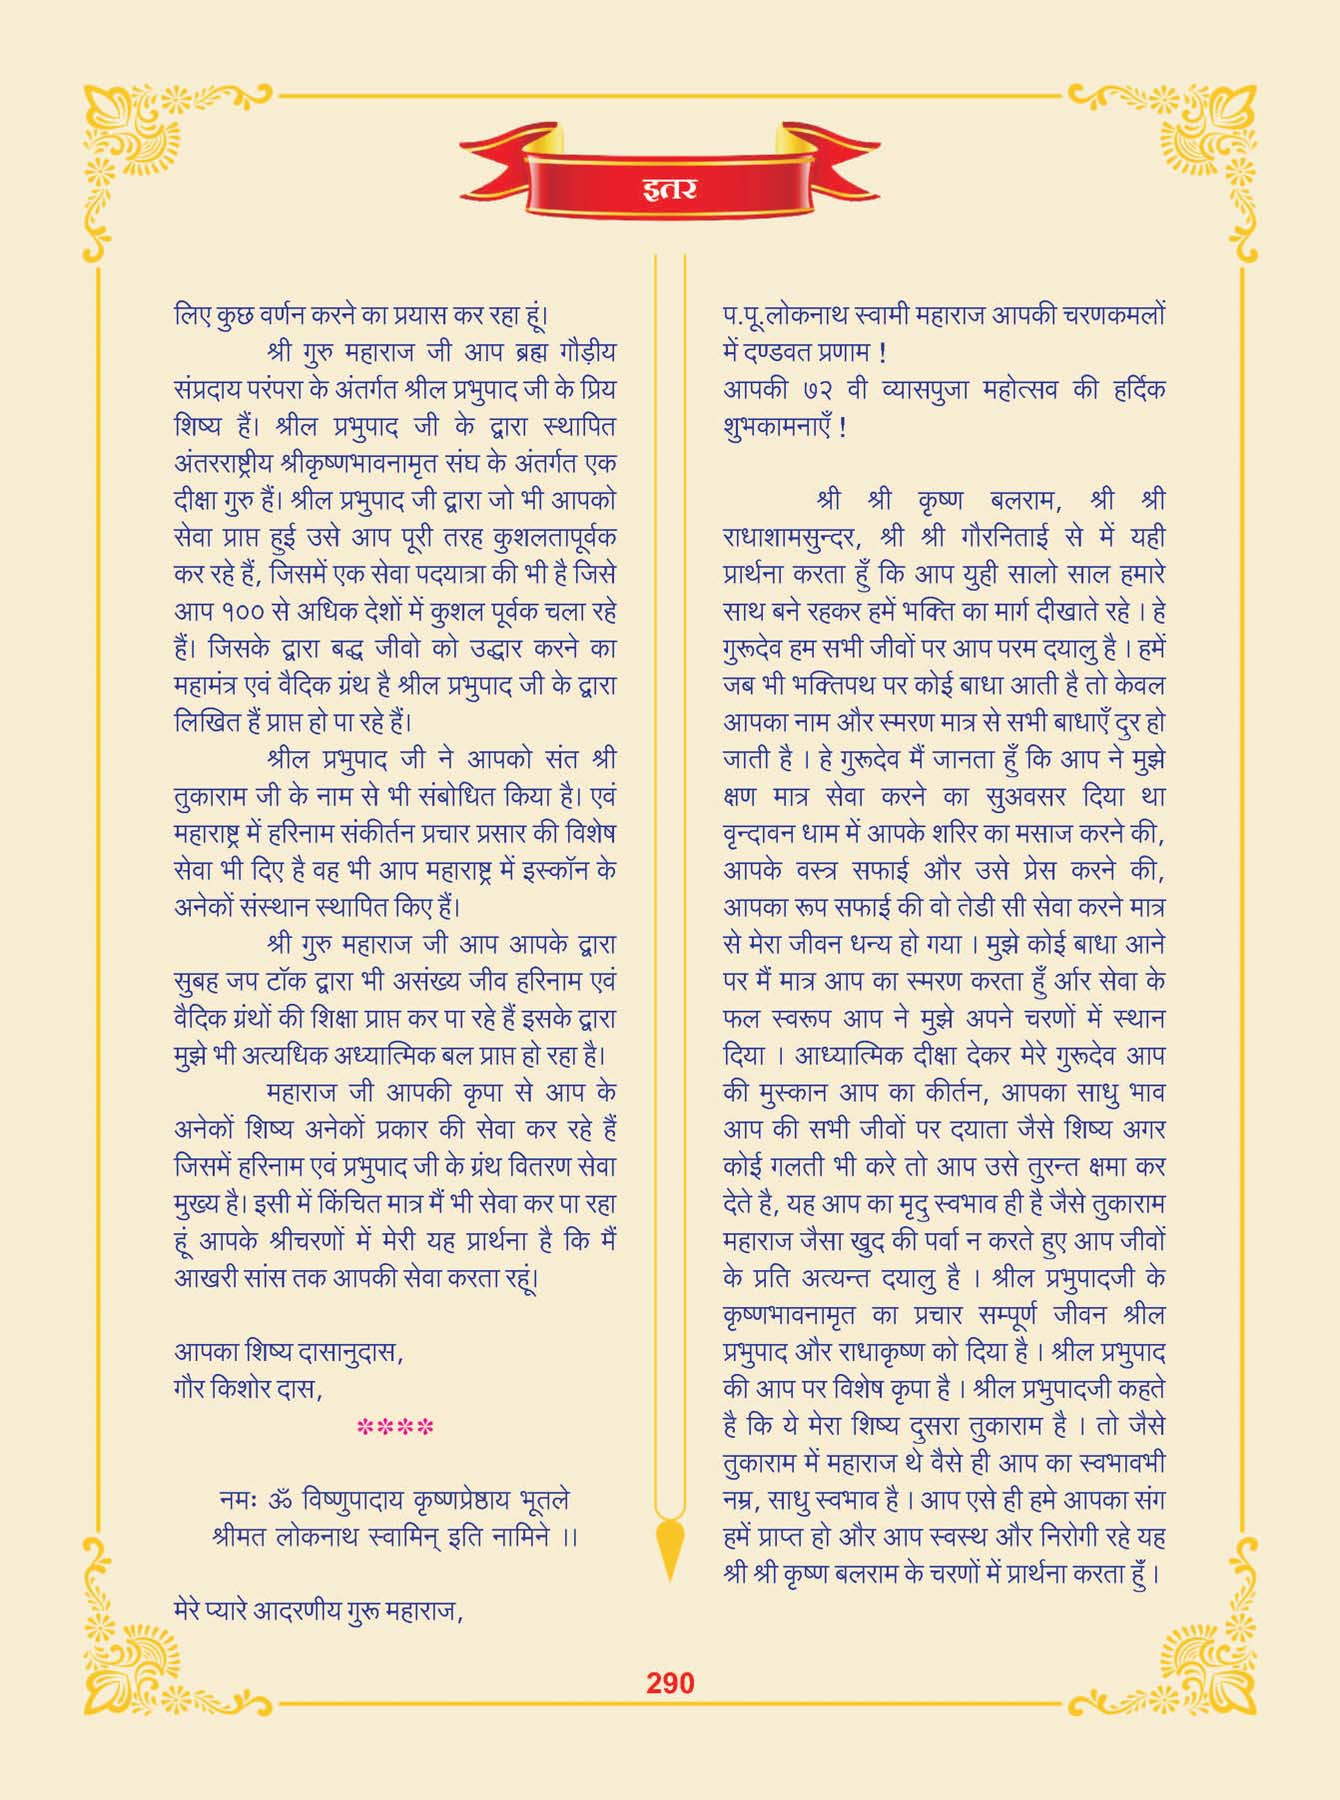 इतर
लिए कुछ वर्णन करने का प्रयास कर रहा हूं।
श्री गुरु महाराज जी आप ब्रह्म गौड़ीय
संप्रदाय परंपरा के अंतर्गत श्रील प्रभुपाद जी के प्रिय
शिष्य हैं। श्रील प्रभुपाद जी के द्वारा स्थापित
अंतरराष्ट्रीय श्रीकृष्णभावनामृत संघ के अंतर्गत एक
दीक्षा गुरु हैं। श्रील प्रभुपाद जी द्वारा जो भी आपको
सेवा प्राप्त हुई उसे आप पूरी तरह कुशलतापूर्वक
कर रहे हैं, जिसमें एक सेवा पदयात्रा की भी है जिसे
आप १०० से अधिक देशों में कुशल पूर्वक चला रहे
हैं। जिसके द्वारा बद्ध जीवो को उद्धार करने का
महामंत्र एवं वैदिक ग्रंथ है श्रील प्रभुपाद जी के द्वारा
लिखित हैं प्राप्त हो पा रहे हैं।
श्रील प्रभुपाद जी ने आपको संत श्री
तुकाराम जी के नाम से भी संबोधित किया है। एवं
महाराष्ट्र में हरिनाम संकीर्तन प्रचार प्रसार की विशेष
सेवा भी दिए है वह भी आप महाराष्ट्र में इस्कॉन के
अनेकों संस्थान स्थापित किए हैं।
श्री गुरु महाराज जी आप आपके द्वारा
सुबह जप टॉक द्वारा भी असंख्य जीव हरिनाम एवं
वैदिक ग्रंथों की शिक्षा प्राप्त कर पा रहे हैं इसके द्वारा
मुझे भी अत्यधिक अध्यात्मिक बल प्राप्त हो रहा है।
महाराज जी आपकी कृपा से आप के
अनेकों शिष्य अनेकों प्रकार की सेवा कर रहे हैं
जिसमें हरिनाम एवं प्रभुपाद जी के ग्रंथ वितरण सेवा
मुख्य है। इसी में किंचित मात्र मैं भी सेवा कर पा रहा
हूं आपके श्रीचरणों में मेरी यह प्रार्थना है कि मैं
आखरी सांस तक आपकी सेवा करता रहूं।
आपका शिष्य दासानुदास,
गौर किशोर दास,
****
नमः ॐ विष्णुपादाय कृष्णप्रेष्ठाय भूतले
श्रीमत लोकनाथ स्वामिन् इति नामिने ।।
मेरे प्यारे आदरणीय गुरू महाराज,
प.पू.लोकनाथ स्वामी महाराज आपकी चरणकमलों
में दण्डवत प्रणाम !
आपकी ७२ वी व्यासपुजा महोत्सव की हर्दिक
शुभकामनाएँ !
श्री श्री कृष्ण बलराम, श्री श्री
राधाशामसुन्दर, श्री श्री गौरनिताई से में यही
प्रार्थना करता हुँ कि आप युही सालो साल हमारे
साथ बने रहकर हमें भक्ति का मार्ग दीखाते रहे । हे
गुरूदेव हम सभी जीवों पर आप परम दयालु है । हमें
जब भी भक्तिपथ पर कोई बाधा आती है तो केवल
आपका नाम और स्मरण मात्र से सभी बाधाएँ दुर हो
जाती है । हे गुरूदेव मैं जानता हुँ कि आप ने मुझे
क्षण मात्र सेवा करने का सुअवसर दिया था
वृन्दावन धाम में आपके शरिर का मसाज करने की,
आपके वस्त्र सफाई और उसे प्रेस करने की,
आपका रूप सफाई की वो तेडी सी सेवा करने मात्र
से मेरा जीवन धन्य हो गया । मुझे कोई बाधा आने
पर मैं मात्र आप का स्मरण करता हुँ र्आर सेवा के
फल स्वरूप आप ने मुझे अपने चरणों में स्थान
दिया । आध्यात्मिक दीक्षा देकर मेरे गुरूदेव आप
की मुस्कान आप का कीर्तन, आपका साधु भाव
आप की सभी जीवों पर दयाता जैसे शिष्य अगर
कोई गलती भी करे तो आप उसे तुरन्त क्षमा कर
देते है, यह आप का मृदु स्वभाव ही है जैसे तुकाराम
महाराज जैसा खुद की पर्वा न करते हुए आप जीवों
के प्रति अत्यन्त दयालु है । श्रील प्रभुपादजी के
कृष्णभावनामृत का प्रचार सम्पूर्ण जीवन श्रील
प्रभुपाद और राधाकृष्ण को दिया है । श्रील प्रभुपाद
की आप पर विशेष कृपा है । श्रील प्रभुपादजी कहते
है कि ये मेरा शिष्य दुसरा तुकाराम है । तो जैसे
तुकाराम में महाराज थे वैसे ही आप का स्वभावभी
नम्र, साधु स्वभाव है । आप एसे ही हमे आपका संग
हमें प्राप्त हो और आप स्वस्थ और निरोगी रहे यह
श्री श्री कृष्ण बलराम के चरणों में प्रार्थना करता हुँ ।
290